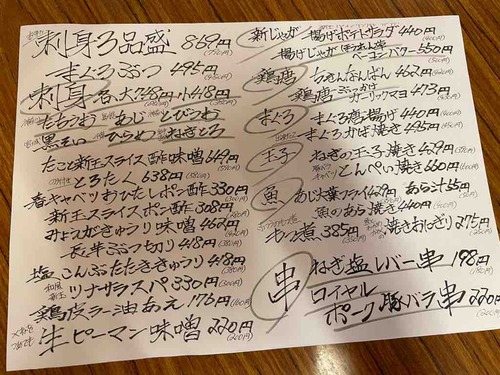 刺身3品盛 869円
まぐろぶつ 495円
刺身各大748円・小418円
たちうお あじ とびうお
黒そい ひらめ ねぎとろ
たこと新玉スライス酢味噌649円
とろたく 638円
春キャベツおひたしポン酢 330円
新玉スライスポン酢 308円
みょうがきゅうり味噌 462円
長芋ぶつ切り 418円
塩こんぶたたききゅうり 418円
ツナサラスパ 330円
鶏皮ラー油あえ 176円
生ピーマン味噌 220円
新じゃが 揚げポテトサラダ 440円
揚げじゃがほうれん草ベーコンバター 550円
鶏唐 ちきんなんばん 462円
鶏唐ぶっかけガーリックマヨ 473円
まぐろ まぐろ唐揚げ 440円
まぐろかま焼き 495円
玉子 ねぎの玉子焼き 429円
とんぺい焼き 660円
魚 あじ大葉フライ429円 あら汁55円
魚のあら焼き 440円
もつ煮 385円 焼きおにぎり 275円
串 ねぎ塩レバー串 198円
ロイヤルポーク豚バラ串 220円